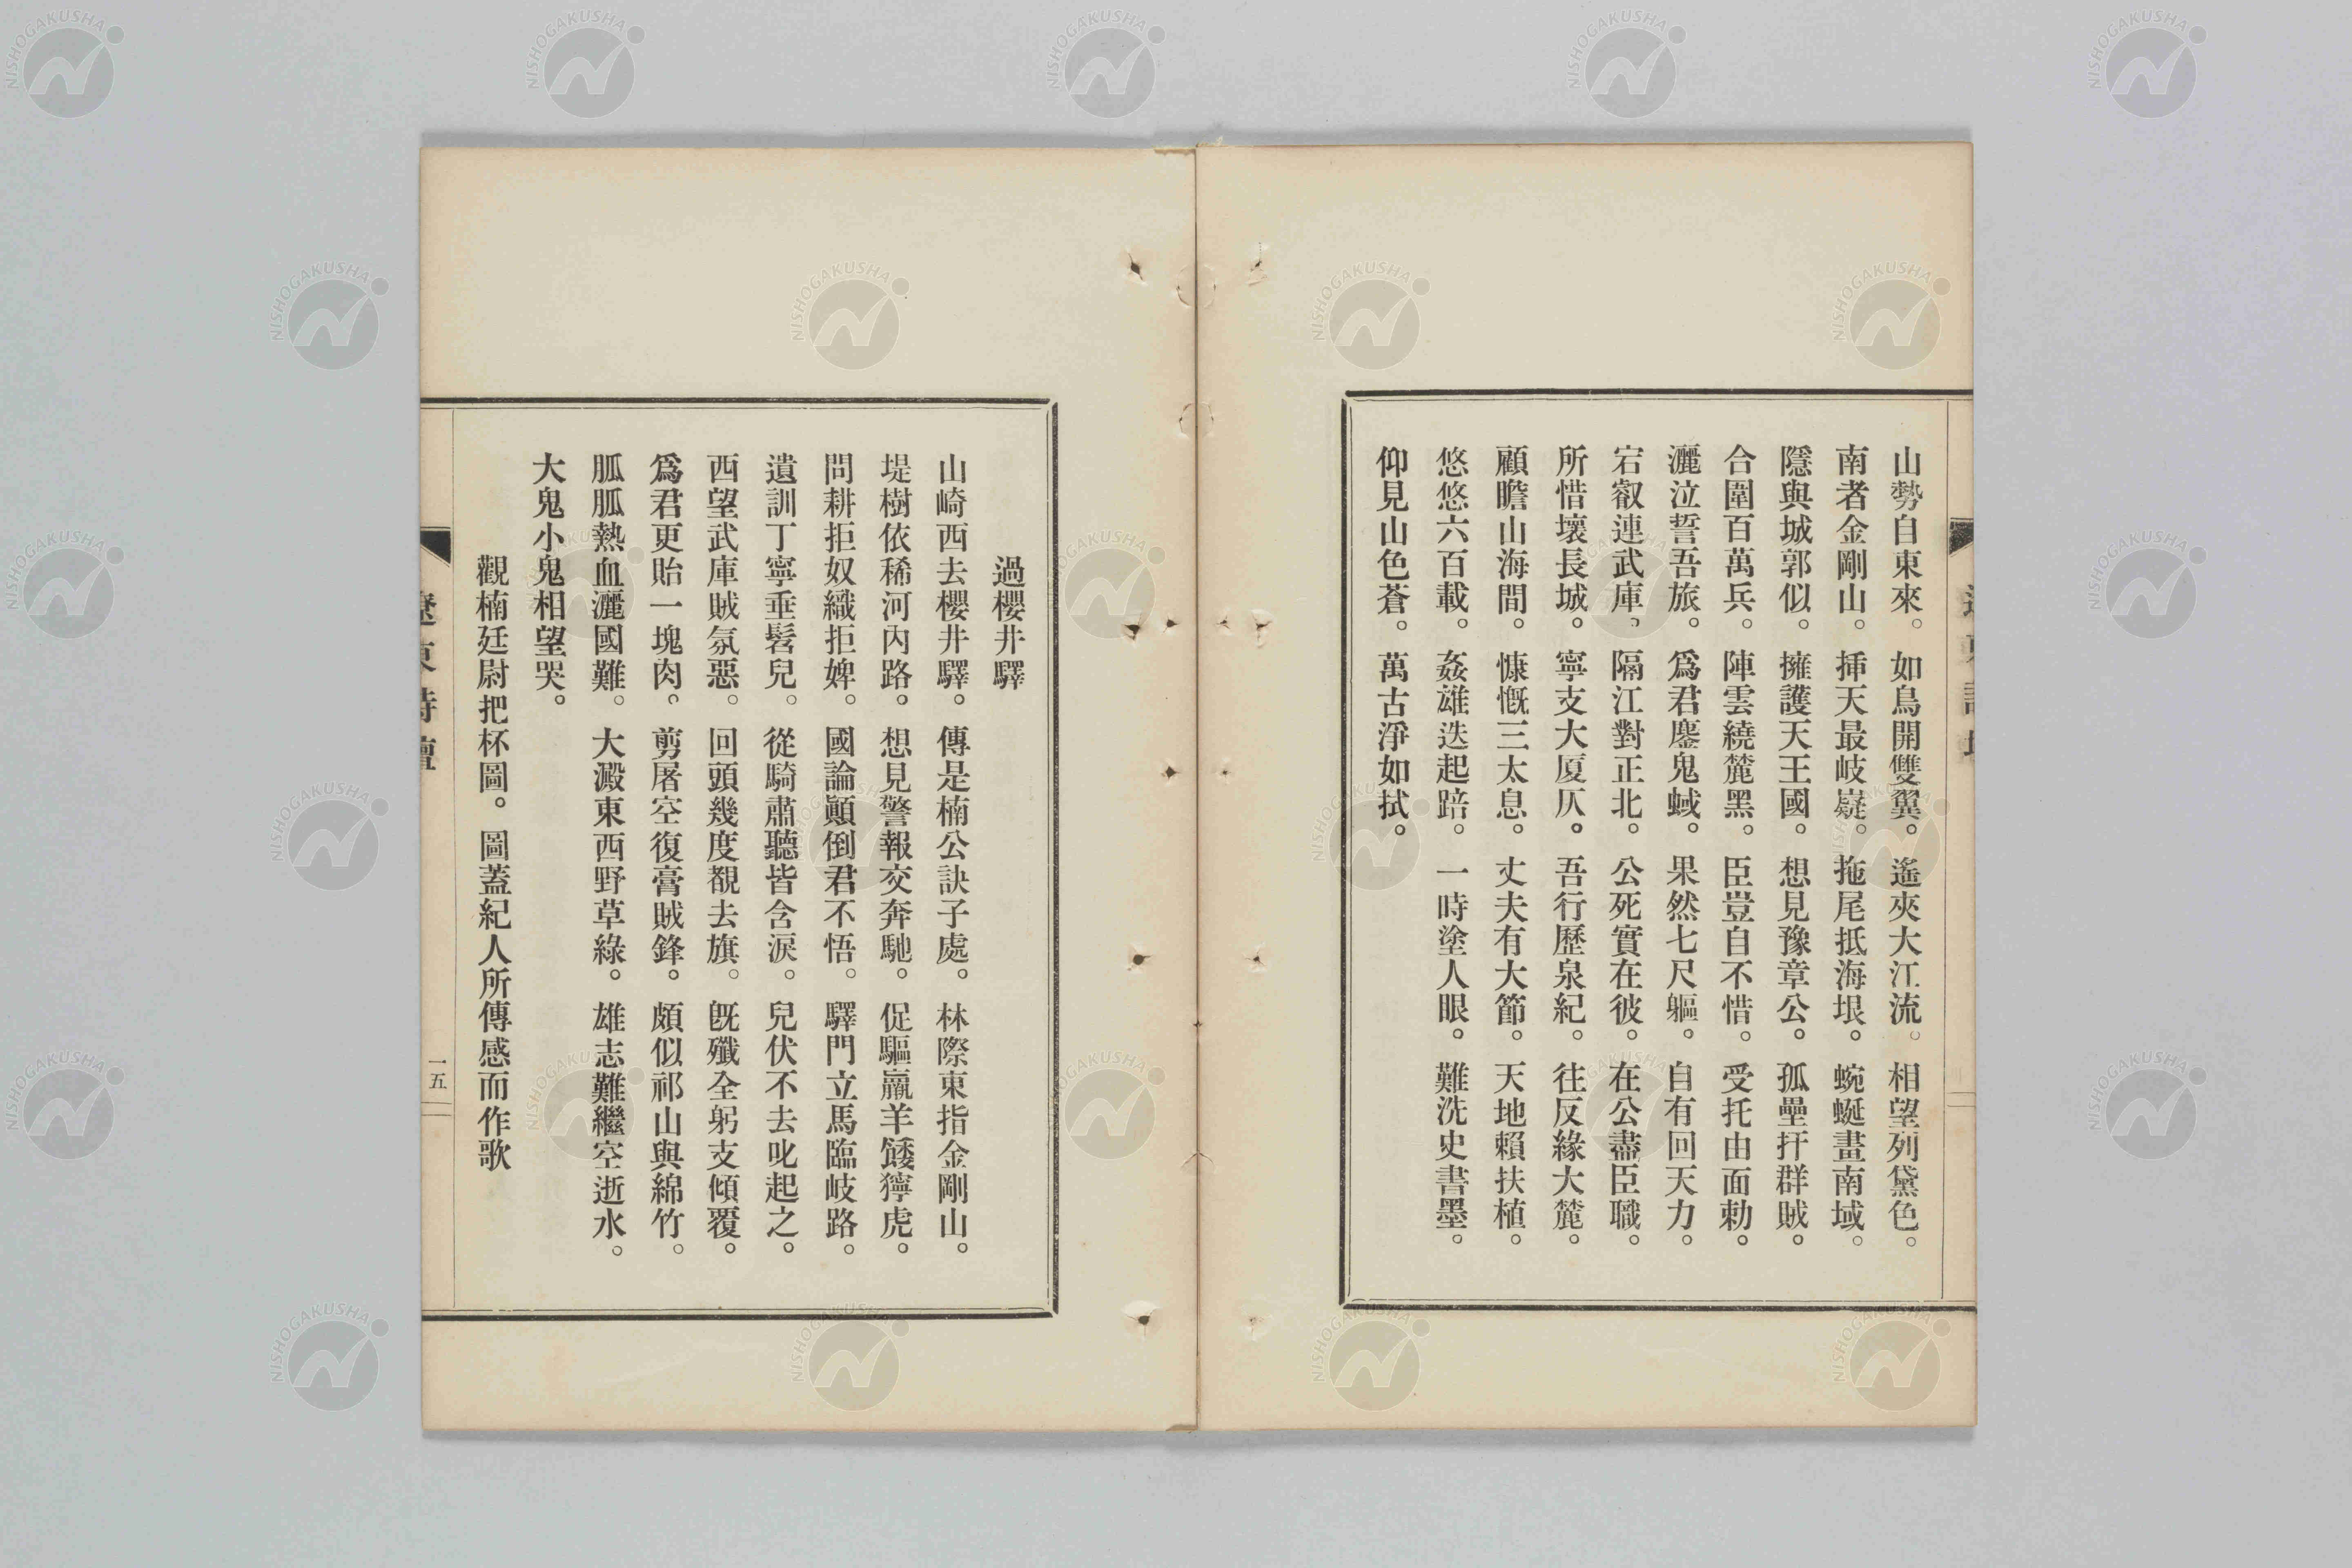 山勢自東來。如鳥開雙翼。遙夾大江流。相望列黛色。
南者金剛山。揷天最岐嶷。拖尾抵海垠。蜿蜒畫南域。
隱與城郭似。擁護天王國。想見豫章公。孤壘扞群賊。
合圍百萬兵。陣雲繞麓黑。臣豈自不惜。受托由面勅。
灑泣誓吾旅。爲君鏖鬼蜮。果然七尺軀。自有回天力。
宕叡連武庫。隔江對正北。公死實在彼。在公盡臣職。
所惜壞長城。寧支大厦仄。吾行歷泉紀。往反緣大麓。
顧瞻山海間。慷慨三太息。丈夫有大節。天地賴扶植。
悠悠六百載。姦雄迭起踣。一時塗人眼。難洗史書墨。
仰見山色蒼。萬古淨如拭。
過櫻井驛
山崎西去櫻井驛。傳是楠公訣子處。林際東指金剛山。
堤樹依稀河內路。想見警報交奔馳。促驅羸羊餧獰虎。
問耕拒奴織拒婢。國論顚倒君不悟。驛門立馬臨岐路。
遺訓丁寧垂髫兒。從騎肅聽皆含淚。兒伏不去叱起之。
西望武庫賊氛惡。回頭幾度覩去旗。旣殲全躬支傾覆。
爲君更貽一塊肉。剪屠空復膏賊鋒。頗似祁山與綿竹。
胍胍熱血灑國難。大澱東西野草綠。雄志難繼空逝水。
大鬼小鬼相望哭。
觀楠廷尉把杯圖。圖蓋紀人所傳感而作歌
遼東詩壇
一五